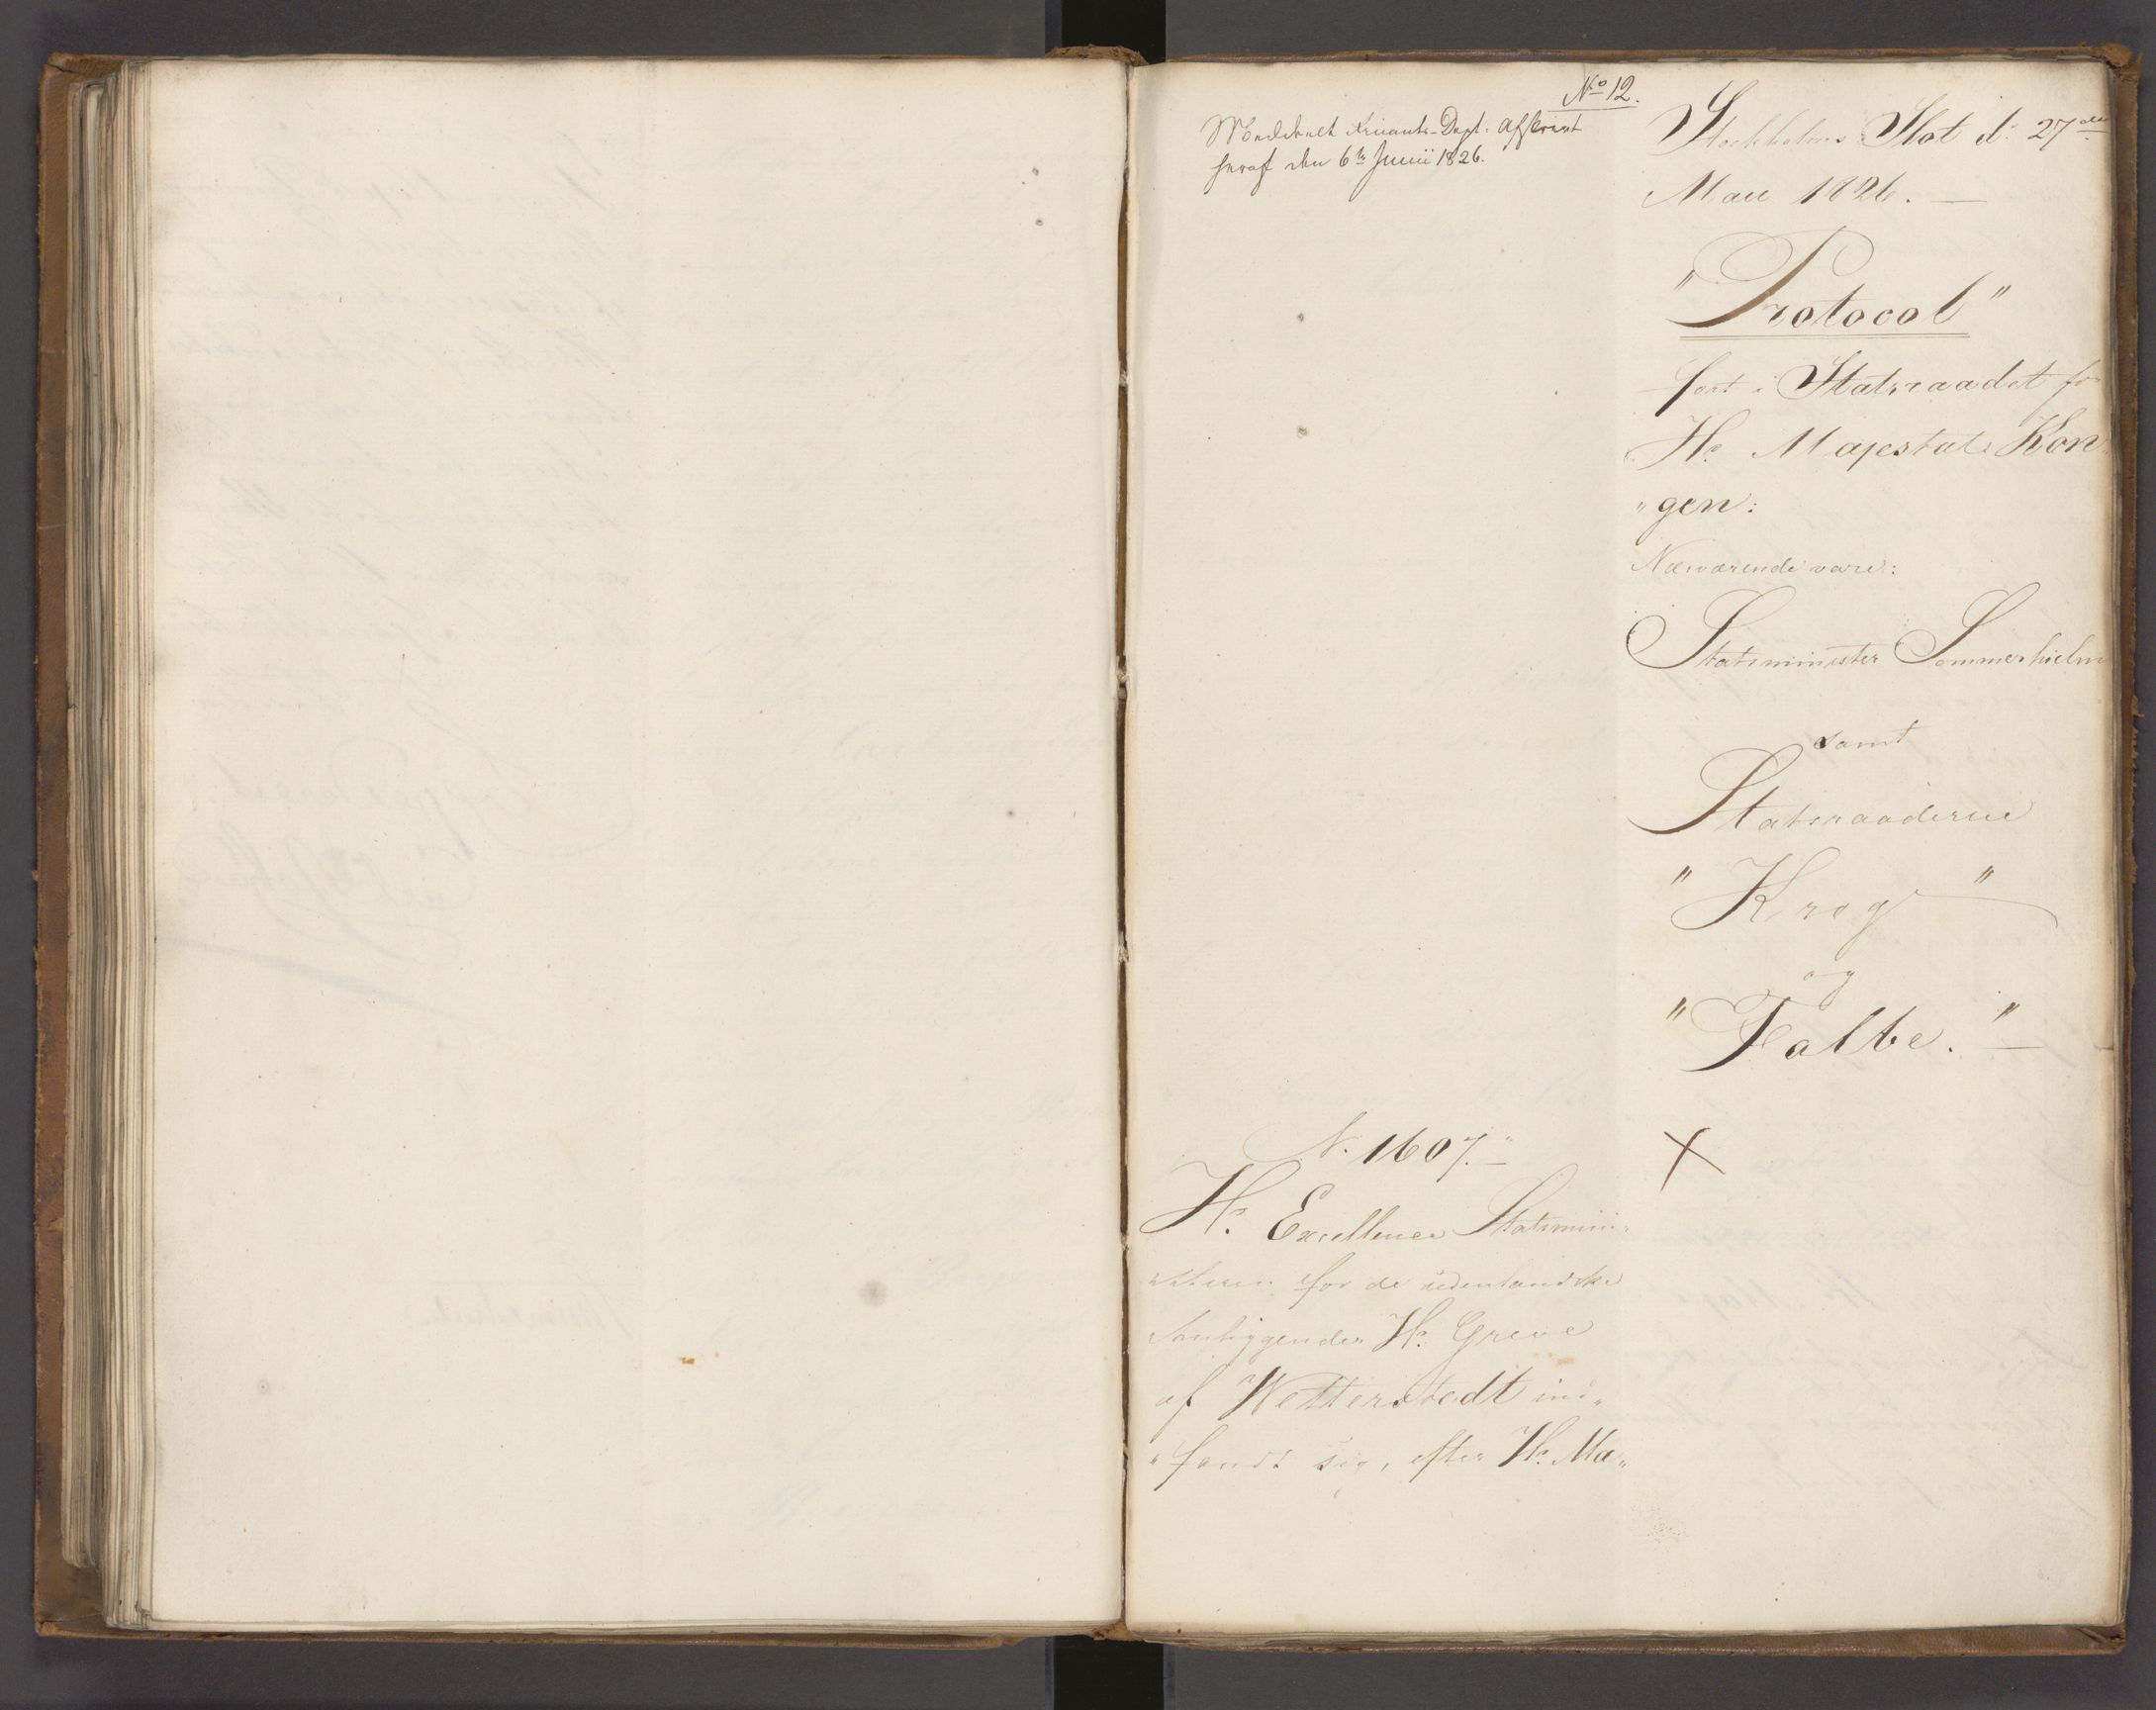 No 12.
Meddeelt Finants-Dept. Afskrivt
heraf den 6te Junii 1826.
Stockholms Slot d: 27de
Maii 1826. —
"Protocol"
ført i Statsraadet for
Hs Majestæt Kon
"gen:
Nærværende vare:
Statsminister Sommerhielm
samt
Statsraaderne
"Krog"
og
"Falbe."—
N. 1607.
Hs. Excellence Statsmini„
„steren for de udenlandske
Anliggender Hr. Greve
af Wetterstedt ind„
„fandt sig, efter Hs. Ma„